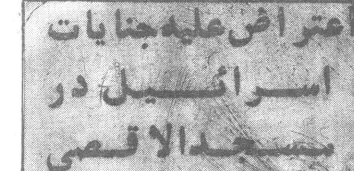 اعتراض علیه جنایات
اسرائیل در
مسجدالاقصی